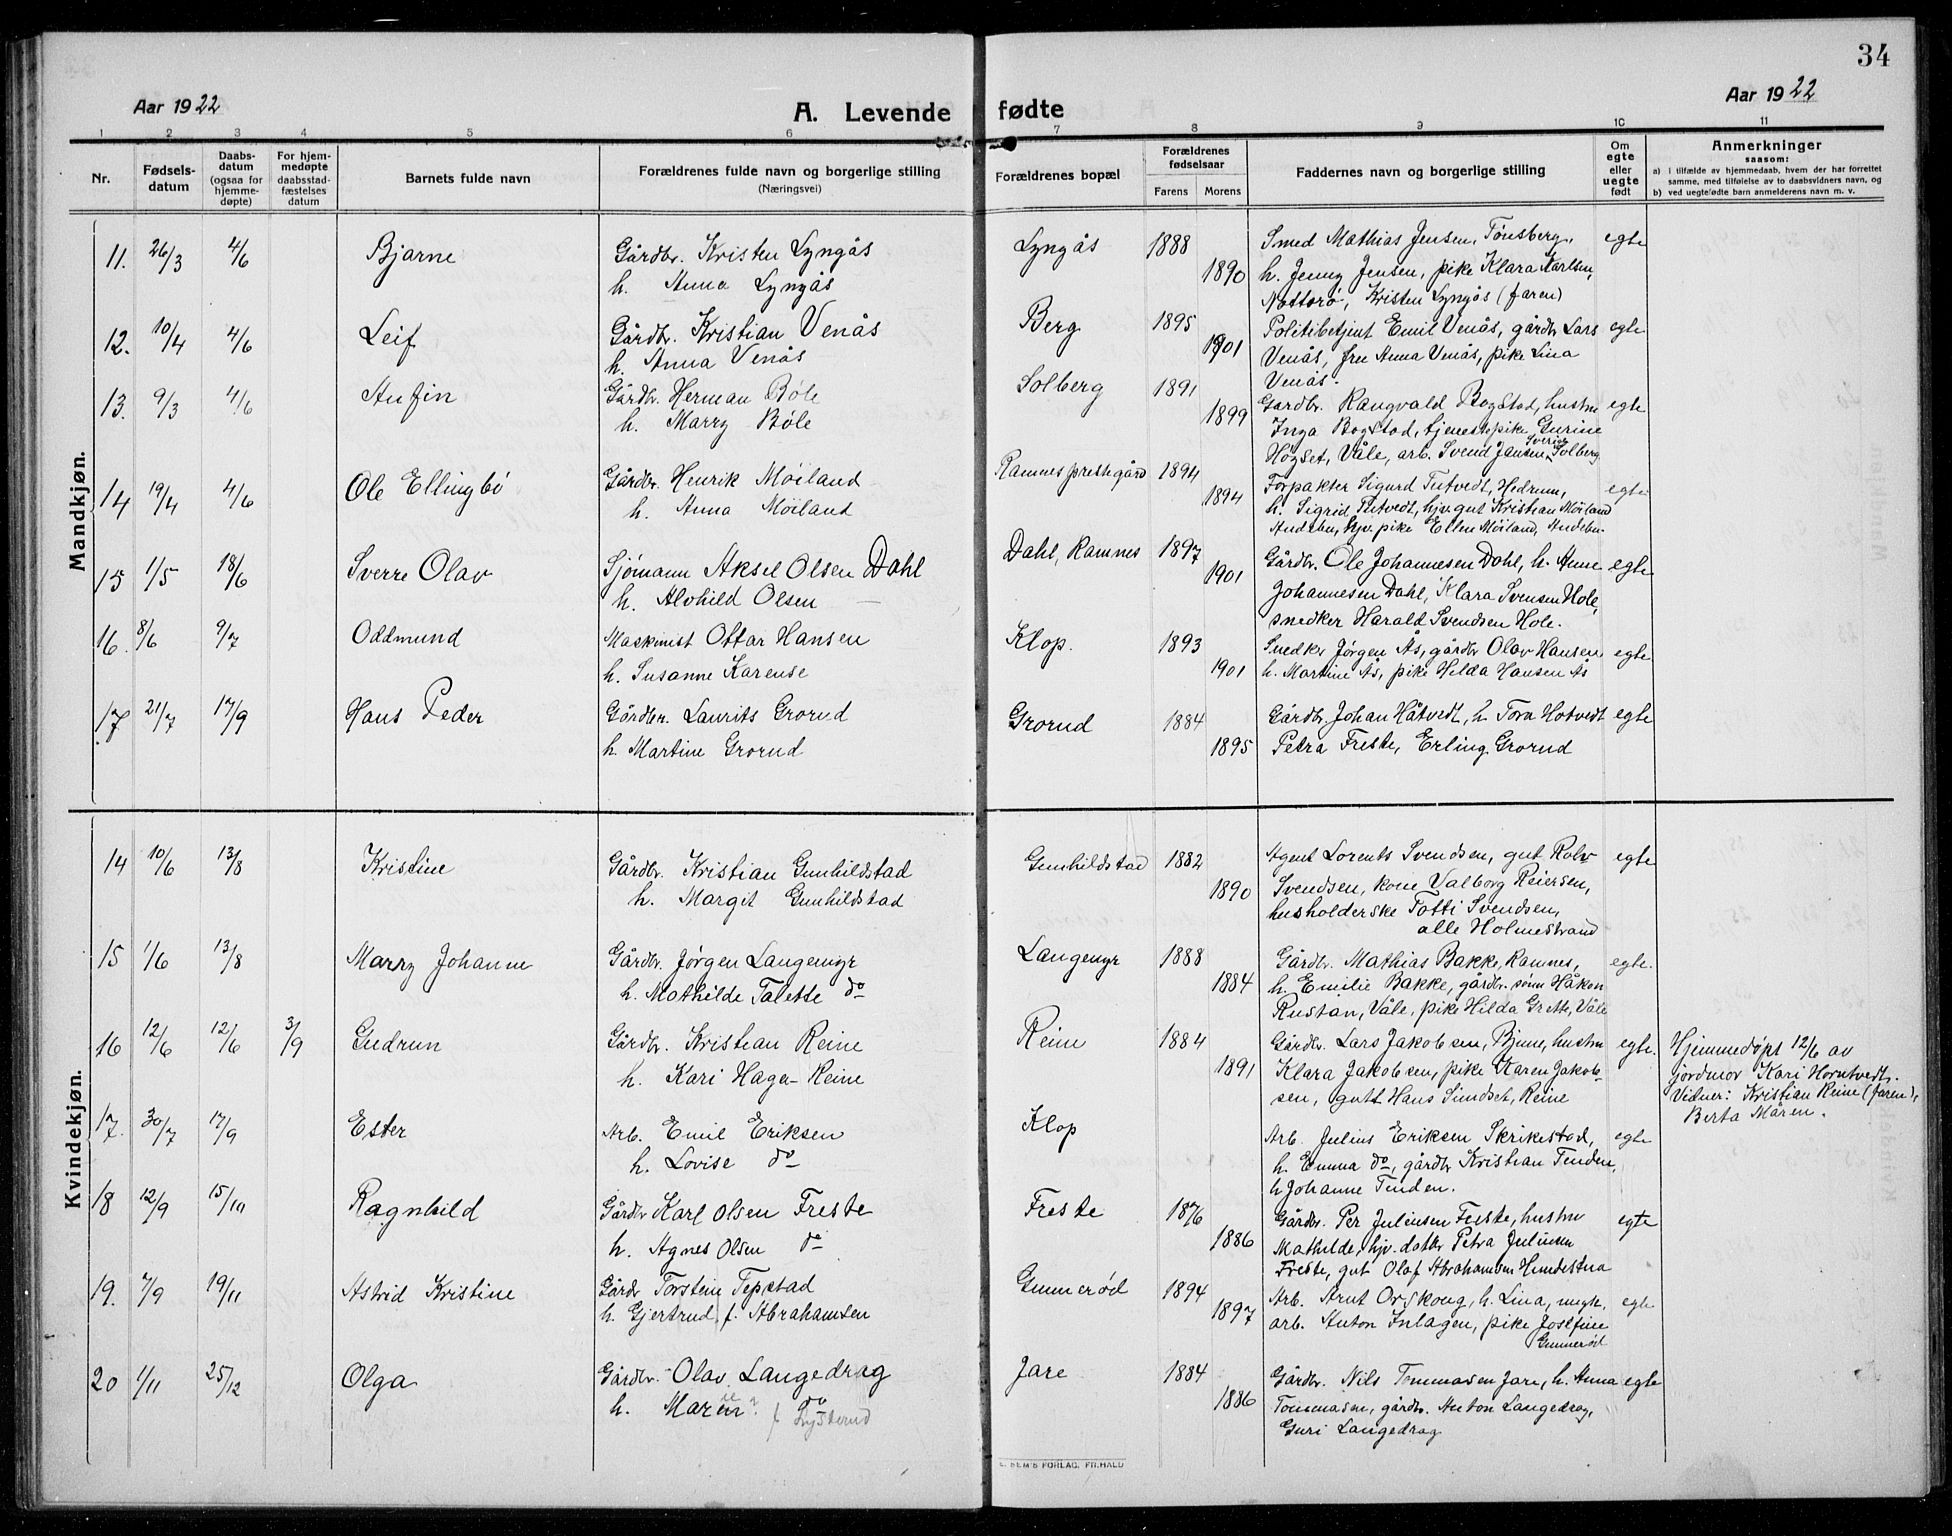 34
Aar 1922
A. Levende fødte
Aar 1922
1 2 3 4 5 6 7 8 9 10 11
Nr.
Fødsels-
datum
Daabs-
datum
(ogsaa for
hjemme-
døpte)
For hjem-
medøpte
daabsstad-
fæstelses
datum
Barnets fulde navn
Forældrenes fulde navn og borgerlige stilling
(Næringsvei)
Forældrenes bopæl
Forældrenes
fødselsaar
Farens Morens
Faddernes navn og borgerlige stilling
Om
egte
eller
uegte
født
Anmerkninger
saasom:
a) i tilfælde av hjemmedaab, hvem der har forrettet
samme, med tilføielse av to daabsvidners navn, og
b) ved uegtefødte barn anmelderens navn m. v.
Mandkjøn.
11. 26/3 4/6 Bjarne Gårdbr. Kristen Lyngås Lyngås 1888 Smed Mathias Jensen, Tönsberg, egte
h. Anna Lyngås 1890 h. Jenny Jensen, pike Klara Karlsen,
Nøtterö, Kristen Lyngås (faren)
12. 10/4 4/6 Leif Gårdbr. Kristian Venås Berg 1895 Politibetjent Emil Venås, gårdbr Lars egte
h. Anna Venås 1901 Venås, fru Anna Venås, pike Lina
Venås.
13. 9/3 4/6 Anfin Gårdbr. Herman Böle Solberg 1891 Gardbr. Rangvald Bogstad, hustru egte
h. Marry Böle 1899 Inga Bogstad, tjenestepike Gurine
Högset, Våle, arb. Svend Jansen Sverige Solberg
14 19/4 4/6 Ole Ellingbö Gårdbr. Henrik Möiland Ramnes prestegård 1894 Forpakter Sigurd Tutvedt, Hedrum, egte
h. Anna Möiland 1894 h. Sigrid Tutvedt, hjv. gut Kristian Möiland
Andebu, hjv. pike Ellen Möiland, Andebu
15 1/5 18/6 Sverre Olav Sjömann Aksel Olsen Dahl Dahl, Ramnes 1897 Gårdbr. Ole Johannesen Dahl, h. Anne egte
h. Alvhild Olsen — 1901 Johannesen Dahl, Klara Svensen Hole,
snedker Harald Svendsen Hole.
16. 8/6 9/7 Oddmund Maskinist Ottar Hansen Klop. 1893 Snedkr Jørgen Ås, gårdbr Olav Hansen, egte
h. Susanne Karense 1901 h. Martine Ås, pike Hilda Hansen Ås
17 21/7 17/9 Hans Peder Gårdbr. Laurits Grorud Grorud 1884 Gårdbr. Johan Håtvedt, h. Tora Hotvedt egte
h. Martine Grorud 1895 Petra Freste, Erling Grorud
Kvindekjøn.
14 10/6 13/8 Kristine Gårdbr. Kristian Gunhildstad Gunhildstad 1882 Agent Lorents Svendsen, gut Rolv egte
h. Margit Gunhildstad 1890 Svendsen, kone Valborg Reiersen,
husholderske Totti Svendsen,
alle Holmestrand
15 1/6 13/8 Marry Johanne Gårdbr. Jørgen Langemyr Langemyr 1888 Gårdbr. Mathias Bakke, Ramnes, egte.
h. Mathilde Talette do 1884 h. Emilie Bakke, gårdbr. sönn Håkon
Rustan, Våle, pike Hilda Grette, Våle
16 12/6 12/6 3/9 Gudrun Gårdbr. Kristian Reine Reine 1884 Gårdbr. Lars Jakobsen, Bjune, hustru egte. Hjemmedöpt 12/6 av
h. Kari Hager-Reine 1891 Klara Jakobsen, pike Karen Jakob- jordmor Kari Horntvedt.
sen, gutt Hans Sundset, Reine Vidner: Kristian Reine (faren),
Berta Måren.
17. 30/7 17/9 Ester Arb. Emil Eriksen Klop Arb. Julius Eriksen Skrikestad, egte
h. Lovise do h. Emma do, gårdbr Kristian Tenden,
h Johanne Tenden.
18 12/9 15/10 Ragnhild Gårdbr Karl Olsen Freste Freste 1876 Gårdbr. Per Juliusen Freste, hustru egte
h. Agnes Olsen do 1886 Mathilde, hjv. dattr Petra Juliusen
Freste, gut Olaf Abrahamsen Hundestua
19. 7/9 19/11 Astrid Kristine Gårdbr Torstein Tepstad Gunnerød 1894 Arb. Arnt Orskoug, h. Lina, ungk. egte
h. Gjertrud f. Abrahamsen 1897 arb. Anton Inlagen, pike Josefine
Gunnerød
20 1/11 25/12 Olga Gårdbr. Olav Langedrag Jare 1884 Gårdbr. Nils Tommasen Jare, h. Anna egte
h. Maren? do 1886 Tommasen, gårdbr. Anton Langedrag,
f Lysterud Guri Langedrag
E. SEM'S FORLAG, FR.HALD